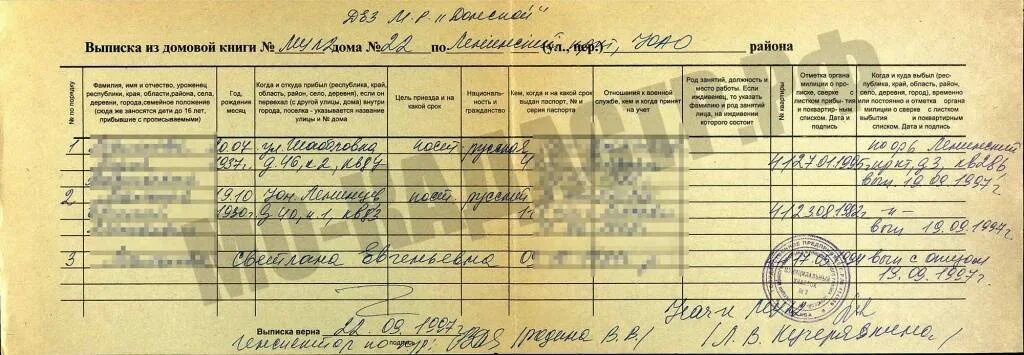 ДЕЗ М.Р. "Донской"
Выписка из домовой книги № дома № 22 по Ленинский (ул., пер.) ЮАО района
№ по порядку
Фамилия, имя и отчество, уроженец республики, края, области, района, села, деревни, города, семейное положение (сюда же заносятся дети до 16 лет, прибывшие с прописываемыми)
Год, рождения месяц
Когда и откуда прибыл (республика, край, область, район, село, деревня), если он переехал (с другой улицы, дома) внутри города, поселка - указывается название улицы и № дома
Цель приезда и на какой срок
Националь- ность и гражданство
Кем, когда и на какой срок выдан паспорт, № и серия паспорта
Отношения к военной службе, кем и когда принят на учет
Род занятий, должность и место работы. Если иждивенец, то указать фамилию и род занятий лица, на иждивении которого состоит
№ квартиры
Отметка органа милиции о про- писке, сверке с листком прибытия и поквартир- ным списком. Дата и подпись
Когда и куда выбыл (республика, край, область, район, село, деревня, город), временно или постоянно и отметка органа милиции о сверке с листком выбытия и поквартирным списком. Дата и подпись
1 10.04 ул. пост. русская по орд. Ленинский
1937г. д. 46, к.2, кв 84 41 27.01.1995 пркт, д 3, кв 286
вып. 19.09.1997г
2 19.10 пост. русский
1930г. д 40, к.1, кв 83 41 23.08.1982 -"-
вып 19.09.1997г
3 Светлана Евгеньевна 09 41 17.05.1994 вып с отцом
19.09.1997г.
Выписка верна 22.09.1997г.
подпись
/Родина В.В./
/Л.В. Кучерявкина/
МО-КАДАСТР.РФ